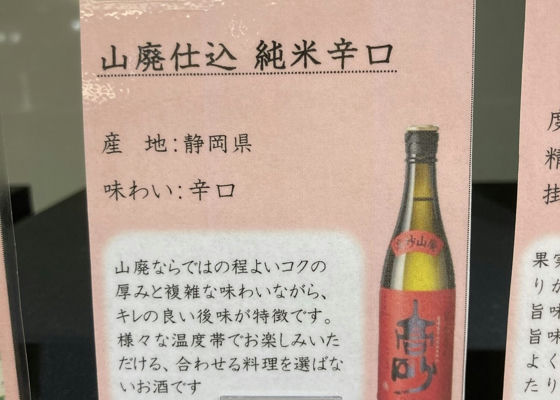 山廃仕込 純米辛口
産 地:静岡県
味わい:辛口
山廃ならではの程よいコクの
厚みと複雑な味わいながら、
キレの良い後味が特徴です。
様々な温度帯でお楽しみいた
だける、合わせる料理を選ばな
いお酒です
山廃
高砂
度
精
掛
果実
りか
旨味
旨味
よく
たり